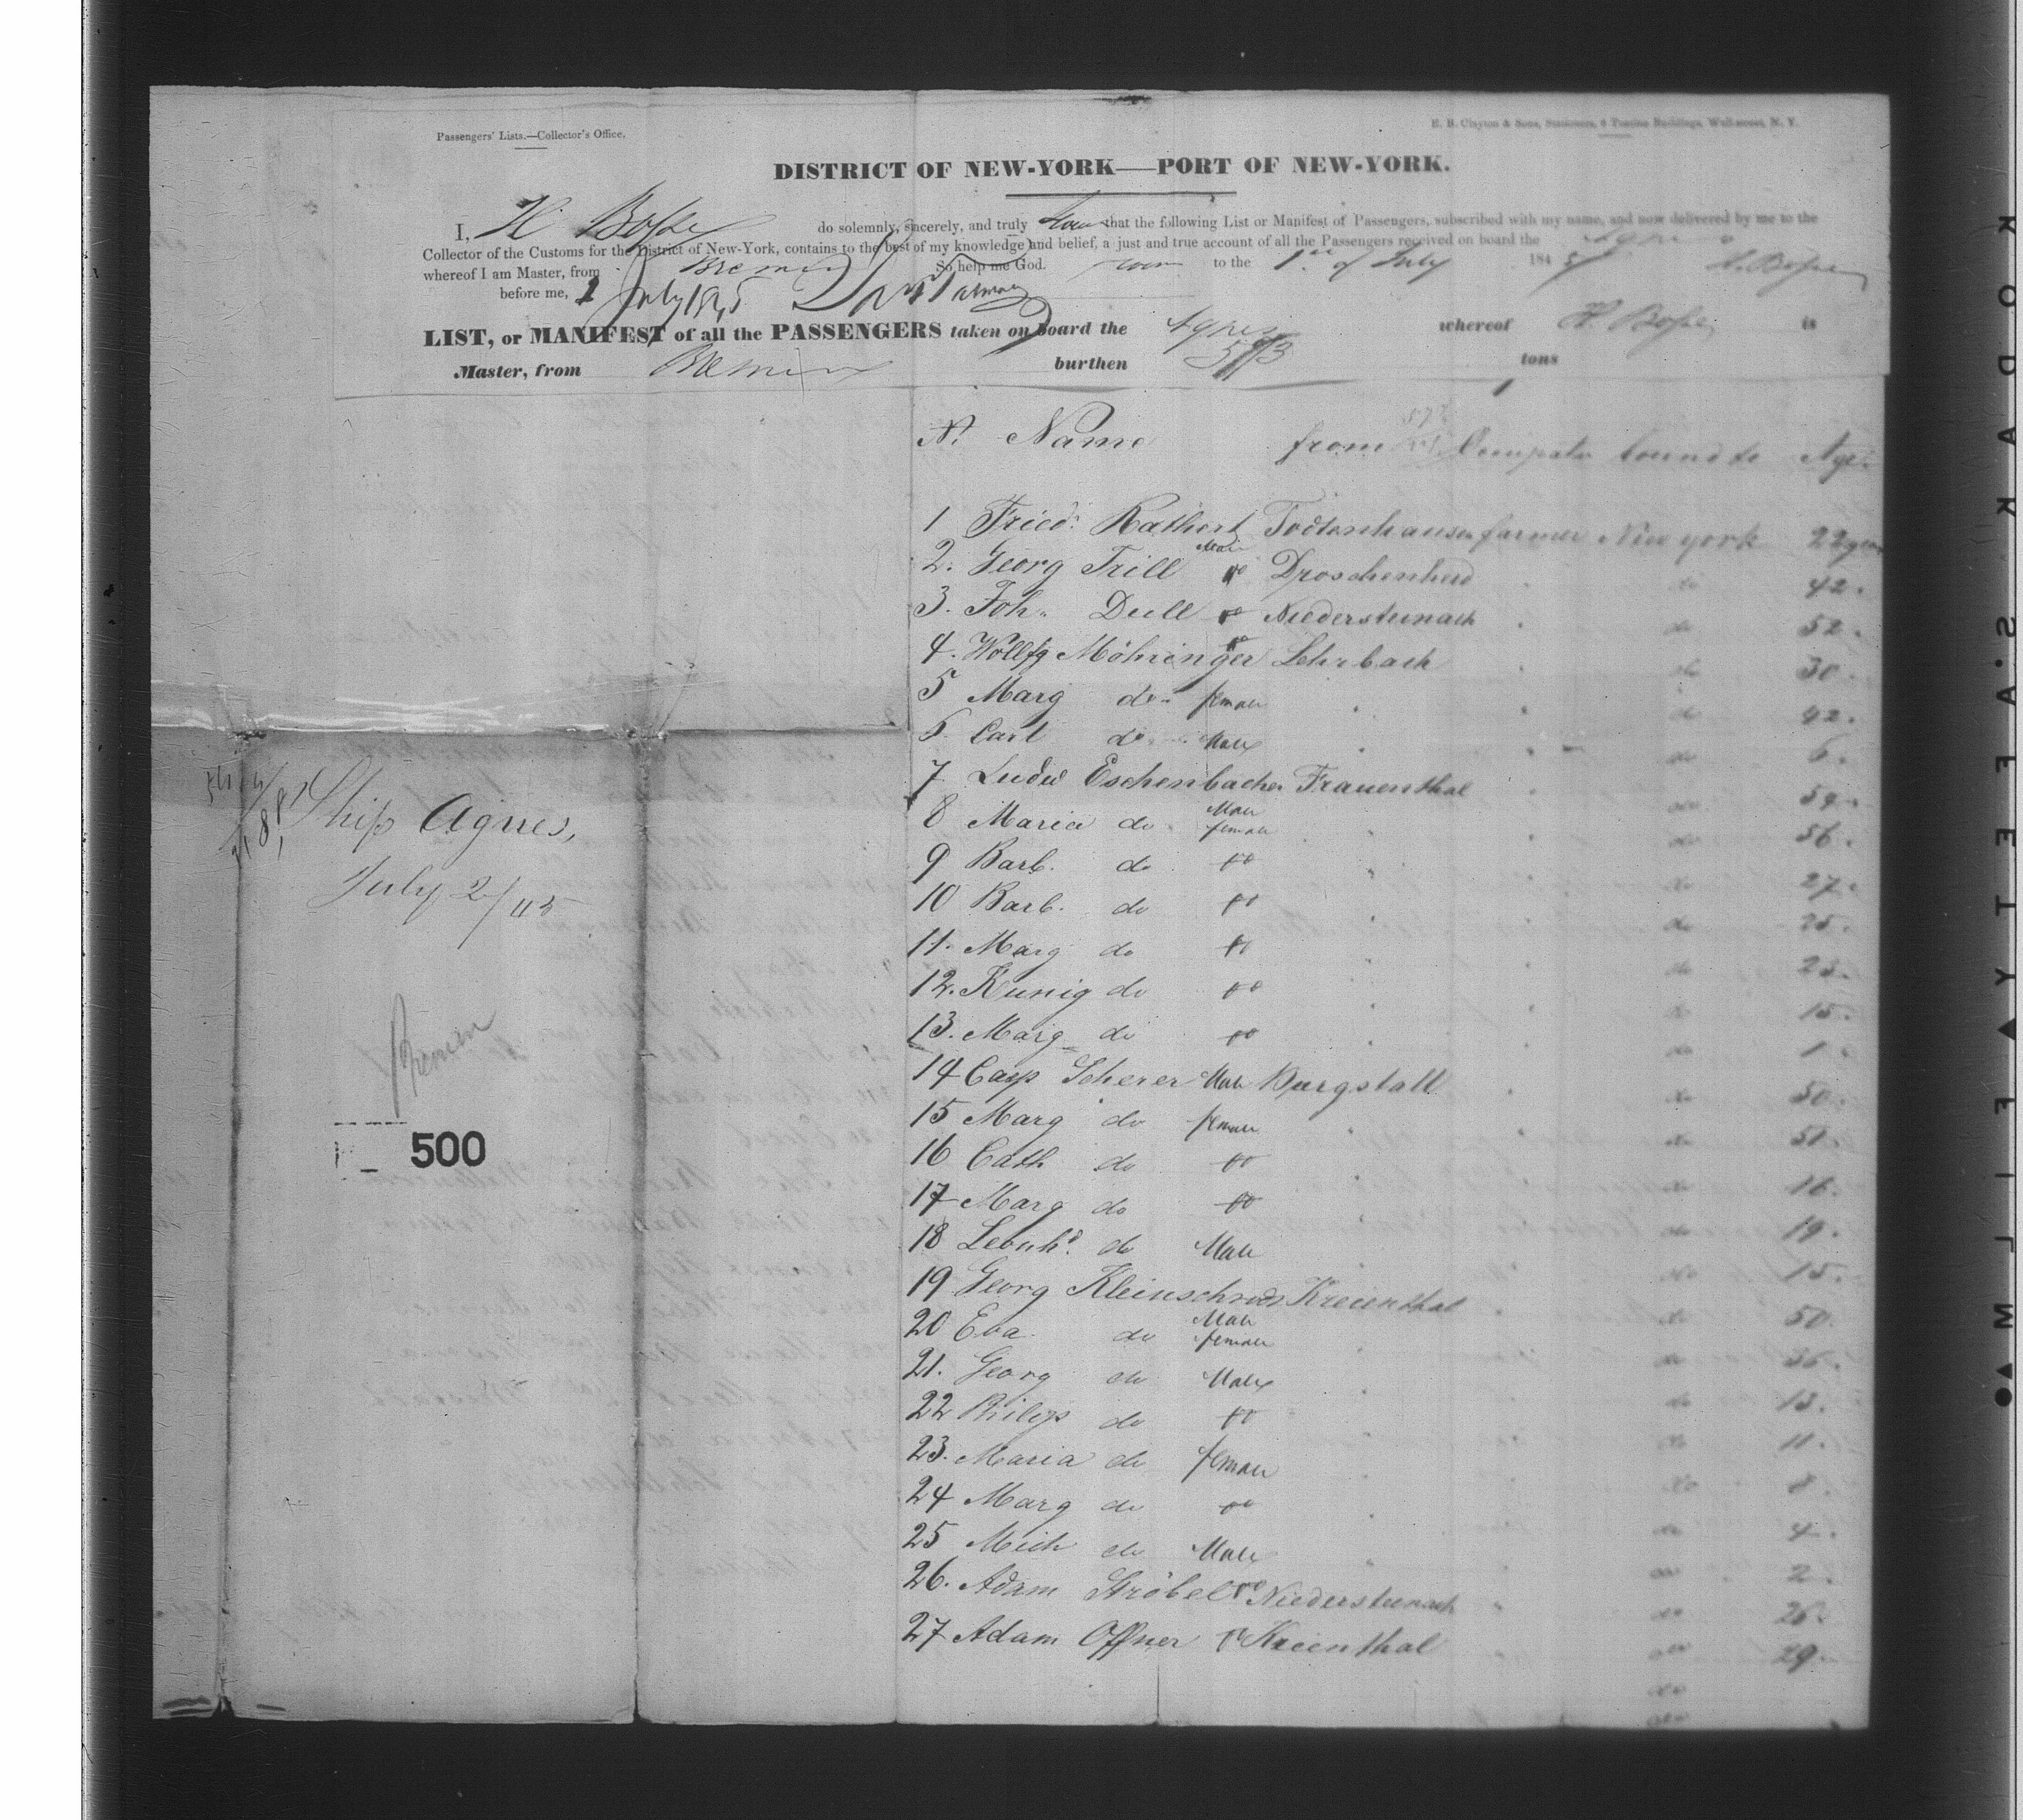 Passengers' Lists.—Collector's Office.
E. B. Clayton & Sons, Stationers, Tontine Buildings, Wall-street, N. Y.
DISTRICT OF NEW-YORK—PORT OF NEW-YORK.
I, H Bosse do solemnly, sincerely, and truly that the following List or Manifest of Passengers, subscribed with my name, and now delivered by me to the
Collector of the Customs for the District of New-York, contains to the best of my knowledge and belief, a just and true account of all the Passengers received on board the Agnes
whereof I am Master, from Bremen So help me God. to the 1st of July 1845 H. Bosse
before me, 2 July 1845
LIST, or MANIFEST of all the PASSENGERS taken on board the Agnes whereof H. Bosse is
Master, from Bremen burthen 573 tons
No Name from Occupatn bound to Age
1 Friedr. Rathert Male Todtenhausen farmer New york 22 years
2. Georg Trill do Droschenheid " do 42.
3. Joh. Dull do Niedersteinach " do 52.
4. Wolffg Möhringer do Lehrbach " do 30.
5 Marg do female " " do 42.
6. Carl do Male " " do 6.
7 Ludw Eschenbacher Male Frauenthal " do 54.
8 Maria do female " " do 56.
9 Barb. do do " " do 27.
10 Barb. do do " " do 25.
11. Marg do do " " do 23.
12. Kunig do do " " do 15.
13. Marg do do " " do 1.
14 Casp Scherer Male Burgstall " do 50.
15 Marg do female " " do 51.
16 Cath do do " " do 16.
17 Marg do do " " do 19.
18 Leonhd. do Male " " do 15.
19 Georg Kleinschrod Male Kreienthal " do 50.
20 Eva do female " " do 36.
21. Georg do Male " " do 13.
22 Philip do do " " do 11.
23. Maria do female " " do 8.
24 Marg do do " " do 4.
25 Mich do Male " " do 2.
26. Adam Ströbel do Niedersteinach " do 26.
27 Adam Offner do Kreenthal " do 29.
do
do
Ship Agnes,
July 2/45
Bremen
500
KODAK SAFETY FILM